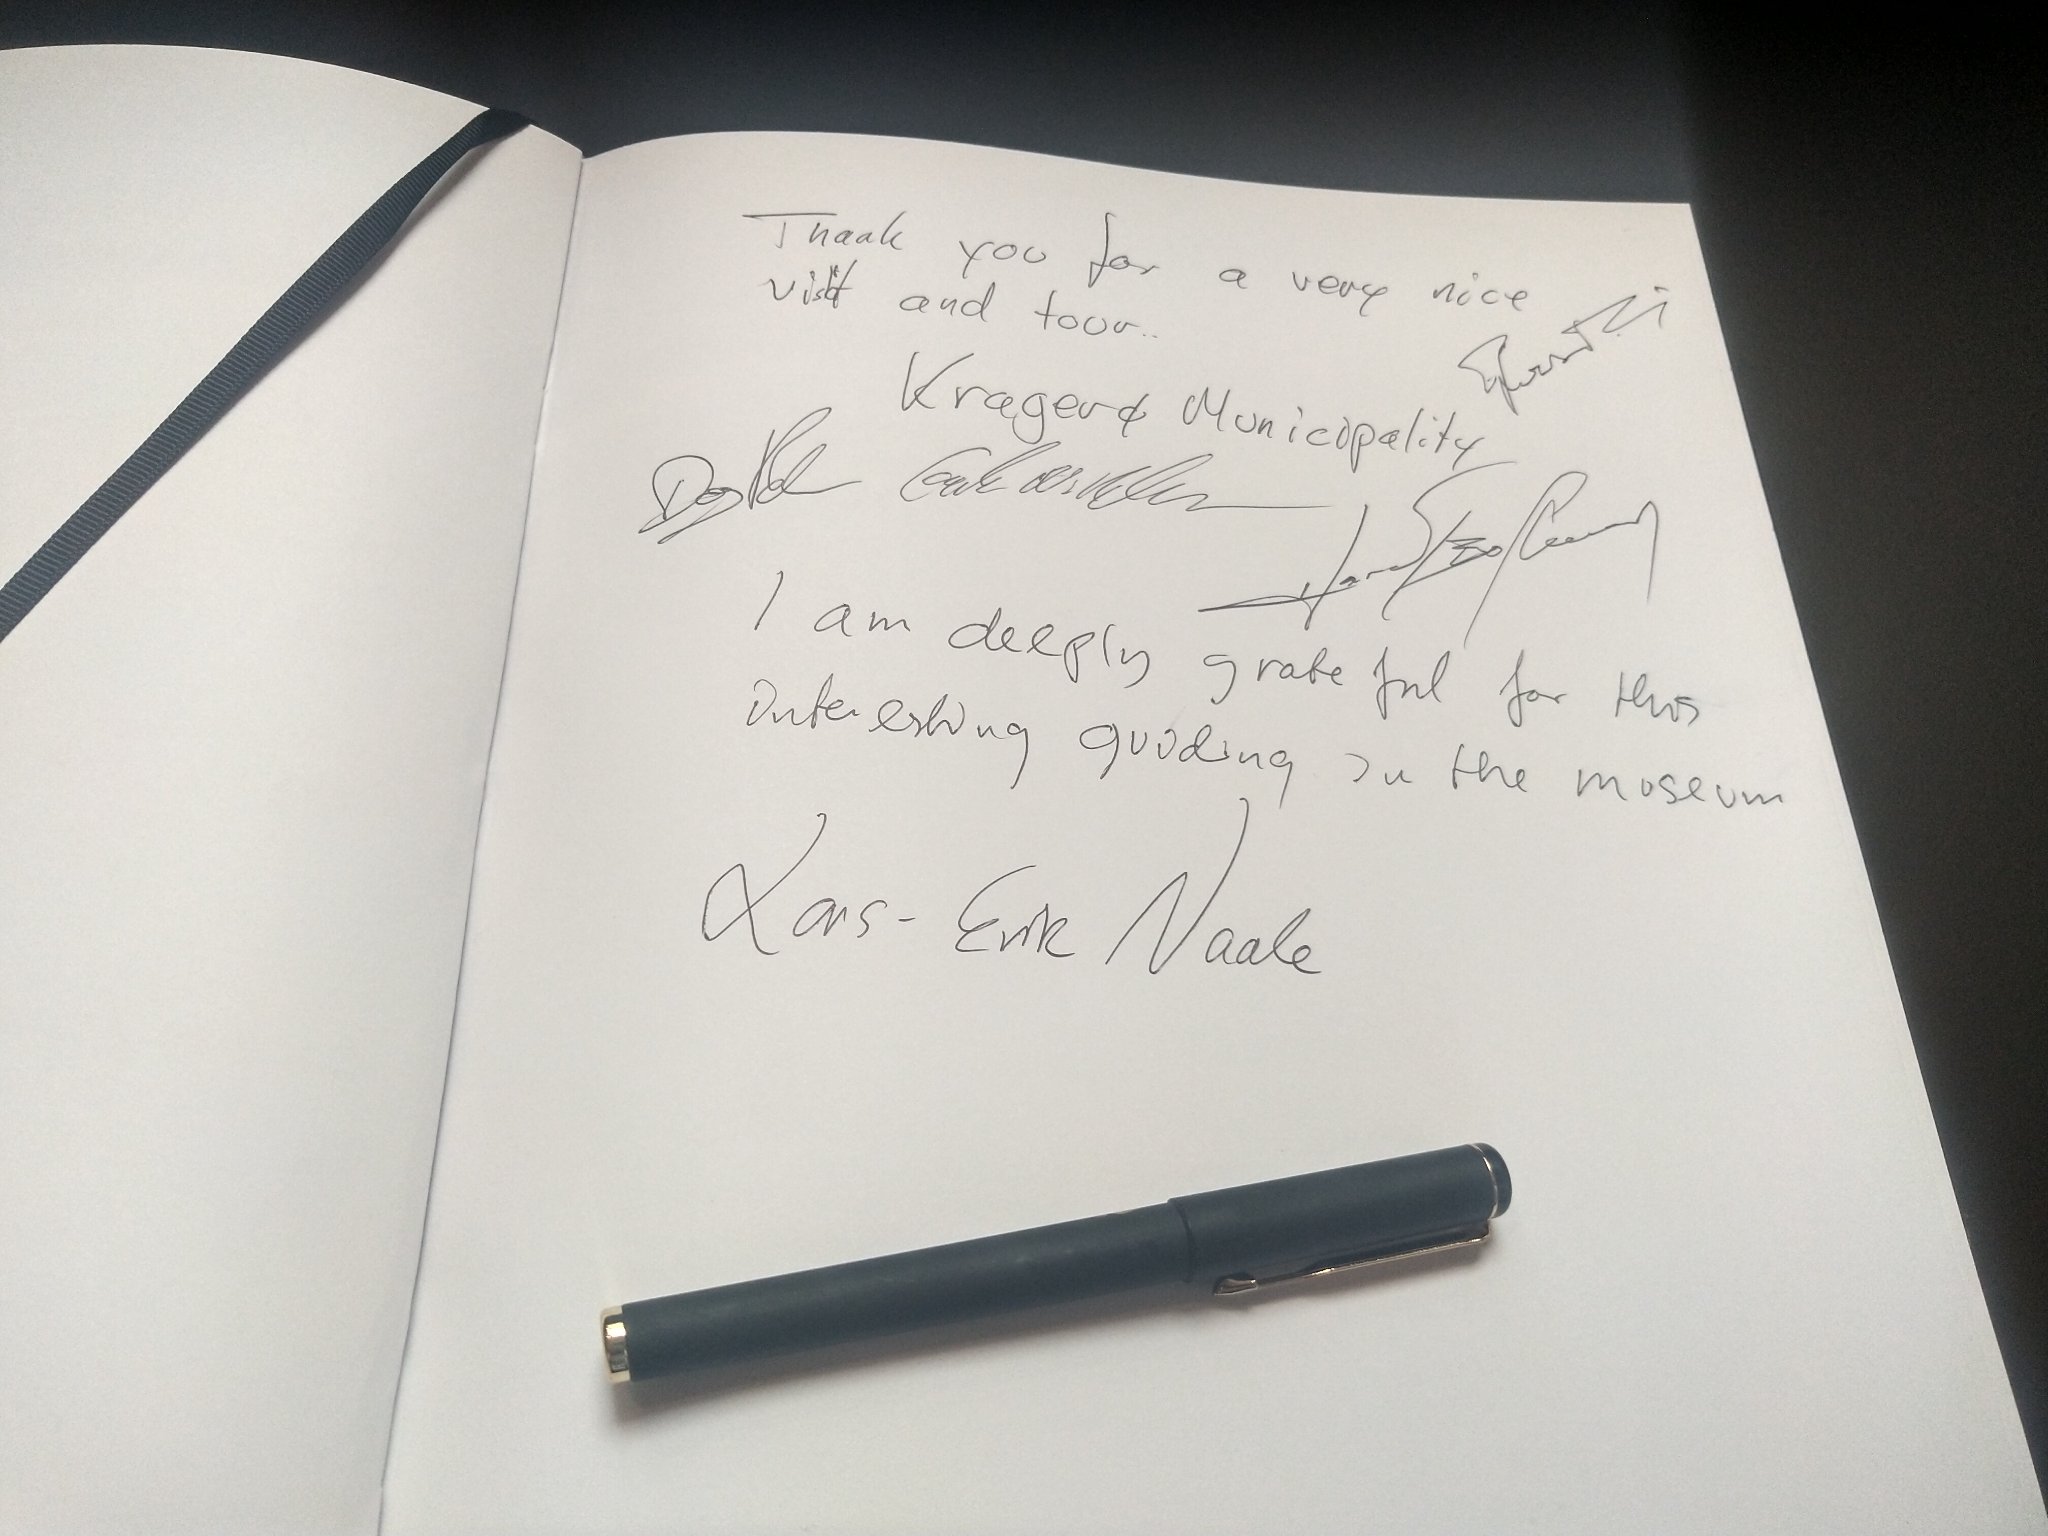 Thank you for a very nice
visit and tour..
Kragerø Municipality
I am deeply grateful for this
interesting guiding in the museum
Lars-Erik Naale